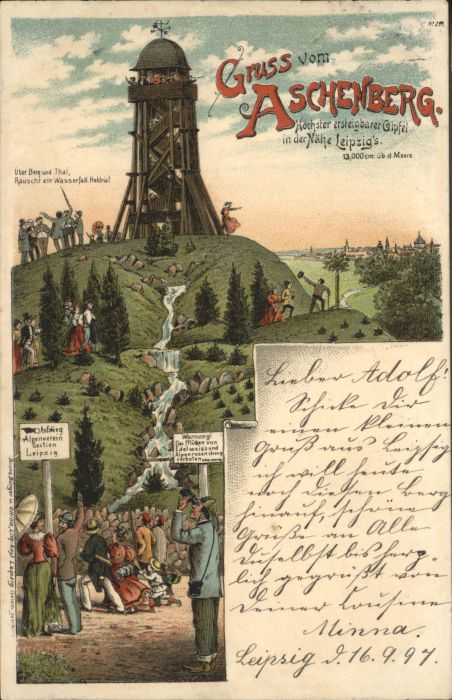 No 211.
Gruss vom
ASCHENBERG.
Höchster ersteigbarer Gipfel
in der Nähe Leipzig's.
13,000 cm. üb. d. Meere.
Über Berg und Thal,
Rauscht ein Wasserfall. Heidrio!
Alpenverein
Section
Leipzig
Warnung!
Das Pflücken von
Edelweiss und
Alpenrosen streng
verboten.
Lieber Adolf!
Schicke Dir
einen kleinen
Gruß aus Leipzig
ich will heute
noch diesen Berg
hinauf, schöne
Grüße an Alle
Duselbst bis herz-
lich gegrüßt von
Deiner Cousine
Minna.
Leipzig d. 16.9.97.